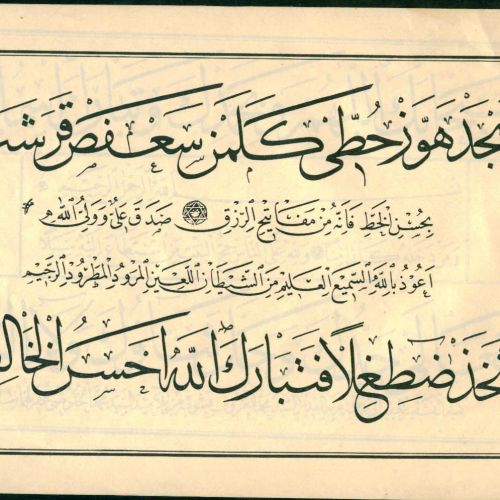 بجد هوز حطي كلمن سعفص قرشت
بحسن الخط فانه من مفاتيح الرزق صدق علي وولي الله
اعوذ بالله السميع العليم من الشيطان اللعين المردود المطرود الرجيم
ثخذ ضظغلا فتبارك الله احسن الخالق